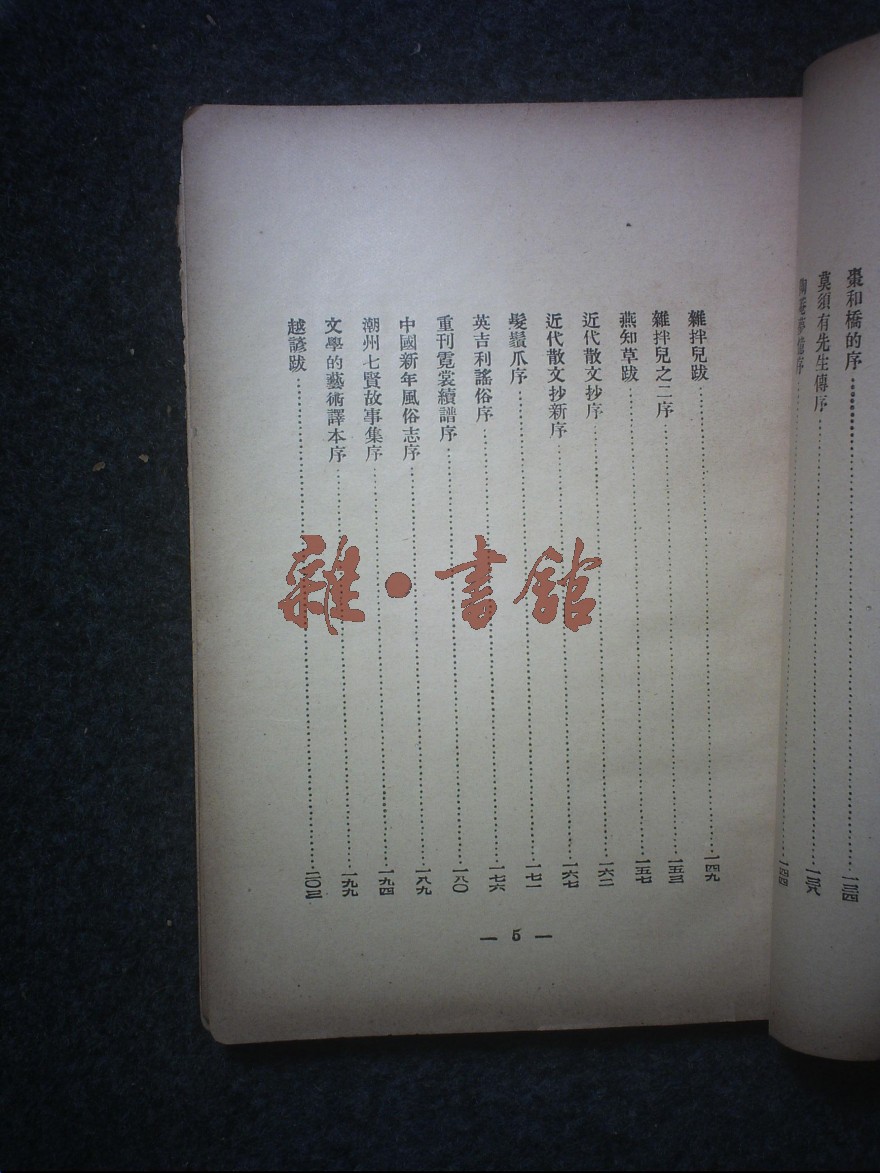 棗和橋的序……一三四
莫須有先生傳序……一三八
夢憶序……一四四
雜拌兒跋……一四九
雜拌兒之二序……一五三
燕知草跋……一五七
近代散文抄序……一六二
近代散文抄新序……一六七
髮鬚爪序……一七一
英吉利謠俗序……一七六
重刊霓裳續譜序……一八〇
中國新年風俗志序……一八九
潮州七賢故事集序……一九四
文學的藝術譯本序……一九九
越諺跋……二〇三
— 5 —
雜·書館